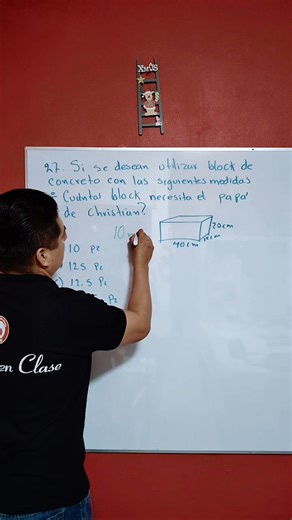 XMAS
27. Si se desean utilizar block de
concreto con las siguientes medidas
¿ Cuántos block necesita el papá
de Christian?
10
20cm
40cm
10 pz
125 Pz
12.5 Pz
Pz
en Clase